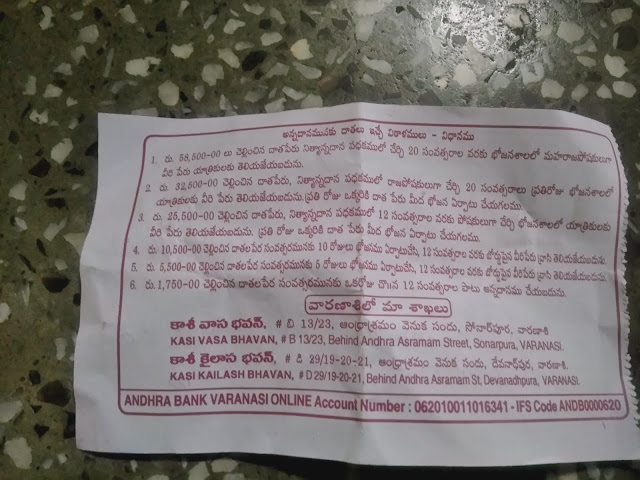 అన్నదానమునకు దాతలు ఇచ్చే విరాళములు - విధానము
1. రు. 58,500-00 లు చెల్లించిన దాతపేరు నిత్యాన్నదాన పధకములో చేర్చి 20 సంవత్సరాల వరకు భోజనశాలలో మహారాజపోషకులుగా
వీరి పేరు యాత్రికులకు తెలియజేయబడును.
2. రు. 32,500-00 చెల్లించిన దాతపేరు, నిత్యాన్నదాన పధకములో రాజపోషకులుగా చేర్చి 20 సంవత్సరాలు ప్రతిరోజు భోజనశాలలో
యాత్రికులకు వీరి పేరు తెలియజేయబడును. ప్రతి రోజు ఒక్కరికి దాత పేరు మీద భోజన ఏర్పాటు చేయగలము.
3. రు. 25,500-00 చెల్లించిన దాతపేరు, నిత్యాన్నదాన పధకములో 12 సంవత్సరాల వరకు పోషకులుగా చేర్చి భోజనశాలలో యాత్రికులకు
వీరి పేరు తెలియజేయబడును. ప్రతి రోజు ఒక్కరికి దాత పేరు మీద భోజన ఏర్పాటు చేయగలము.
4. రు. 10,500-00 చెల్లించిన దాతలపేర సంవత్సరమునకు 10 రోజులు భోజనము ఏర్పాటుచేసి, 12 సంవత్సరాల వరకు బోర్డుపైన వీరిపేరు వ్రాసి తెలియజేయబడును.
5. రు. 5,500-00 చెల్లించిన దాతలపేర సంవత్సరమునకు 5 రోజులు భోజనము ఏర్పాటుచేసి, 12 సంవత్సరాల వరకు బోర్డుపైన వీరిపేరు వ్రాసి తెలియజేయబడును.
6. రు. 1,750-00 చెల్లించిన దాతలపేర సంవత్సరమునకు ఒకరోజు చొప్పున 12 సంవత్సరాల పాటు అన్నదానము చేయబడును.
వారణాశిలో మా శాఖలు
కాశీ వాస భవన్, # బి 13/23, ఆంధ్రాశ్రమం వెనుక సందు, సోనార్‌పూర, వారణాశి
KASI VASA BHAVAN, # B 13/23, Behind Andhra Asramam Street, Sonarpura, VARANASI.
కాశీ కైలాస భవన్, # డి 29/19-20-21, ఆంధ్రాశ్రమం వెనుక సందు, దేవనాథ్‌పుర, వారణాశి.
KASI KAILASH BHAVAN, # D 29/19-20-21, Behind Andhra Asramam St. Devanadhpura, VARANASI.
ANDHRA BANK VARANASI ONLINE Account Number : 062010011016341 - IFS Code ANDB0000620